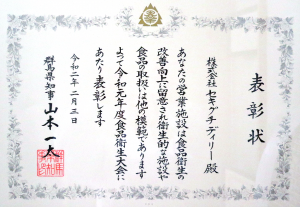 表彰状
株式会社セキグチデイリー殿
あなたの営業施設は食品衛生の
改善向上に留意され衛生的な施設や
食品の取扱は他の模範であります
よって令和元年度食品衛生大会に
あたり表彰します
令和二年二月三日
群馬県知事 山本一太